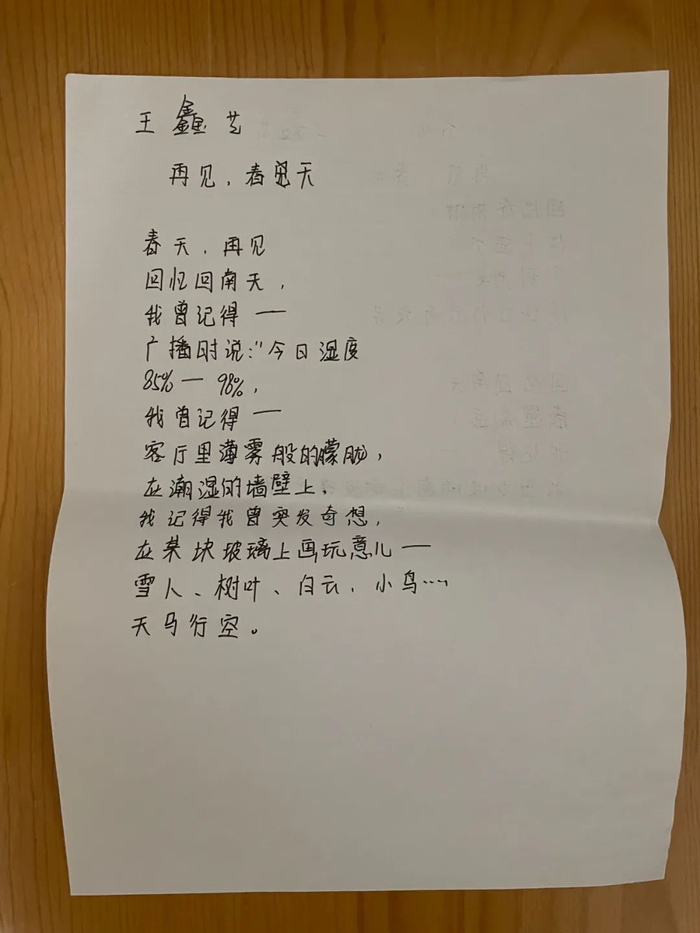 王鑫艺
再见，春天
春天，再见
回归回南天，
我曾记得——
广播时说："今日湿度
85%—98%，
我曾记得——
客厅里薄雾般的朦胧，
在潮湿的墙壁上，
我记得我曾突发奇想，
在某块玻璃上画玩意儿——
雪人、树叶、白云，小鸟……
天马行空。